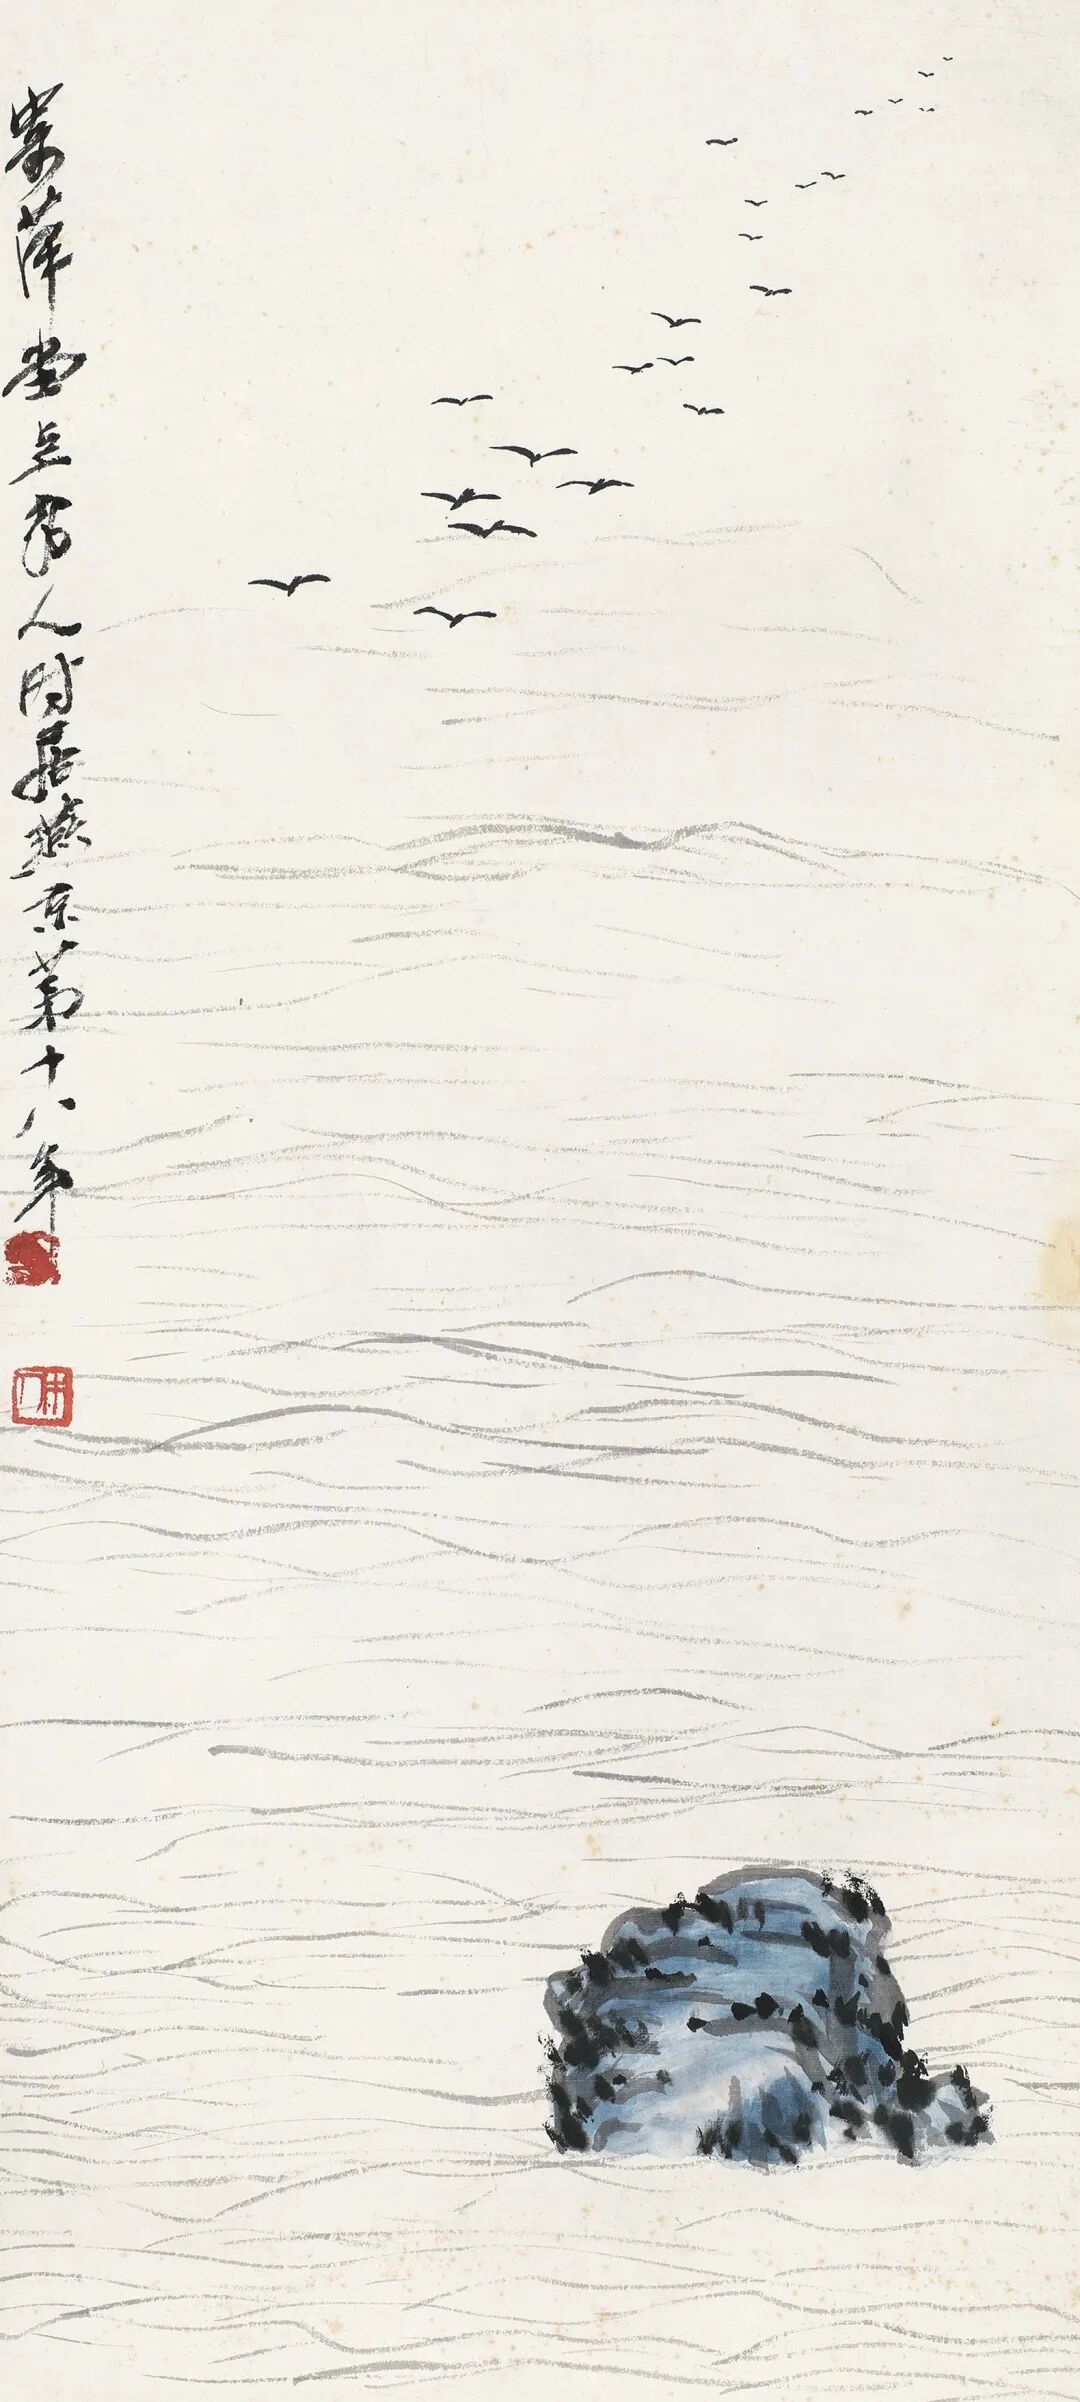 寄萍堂上老人时居燕京第十八年
木人